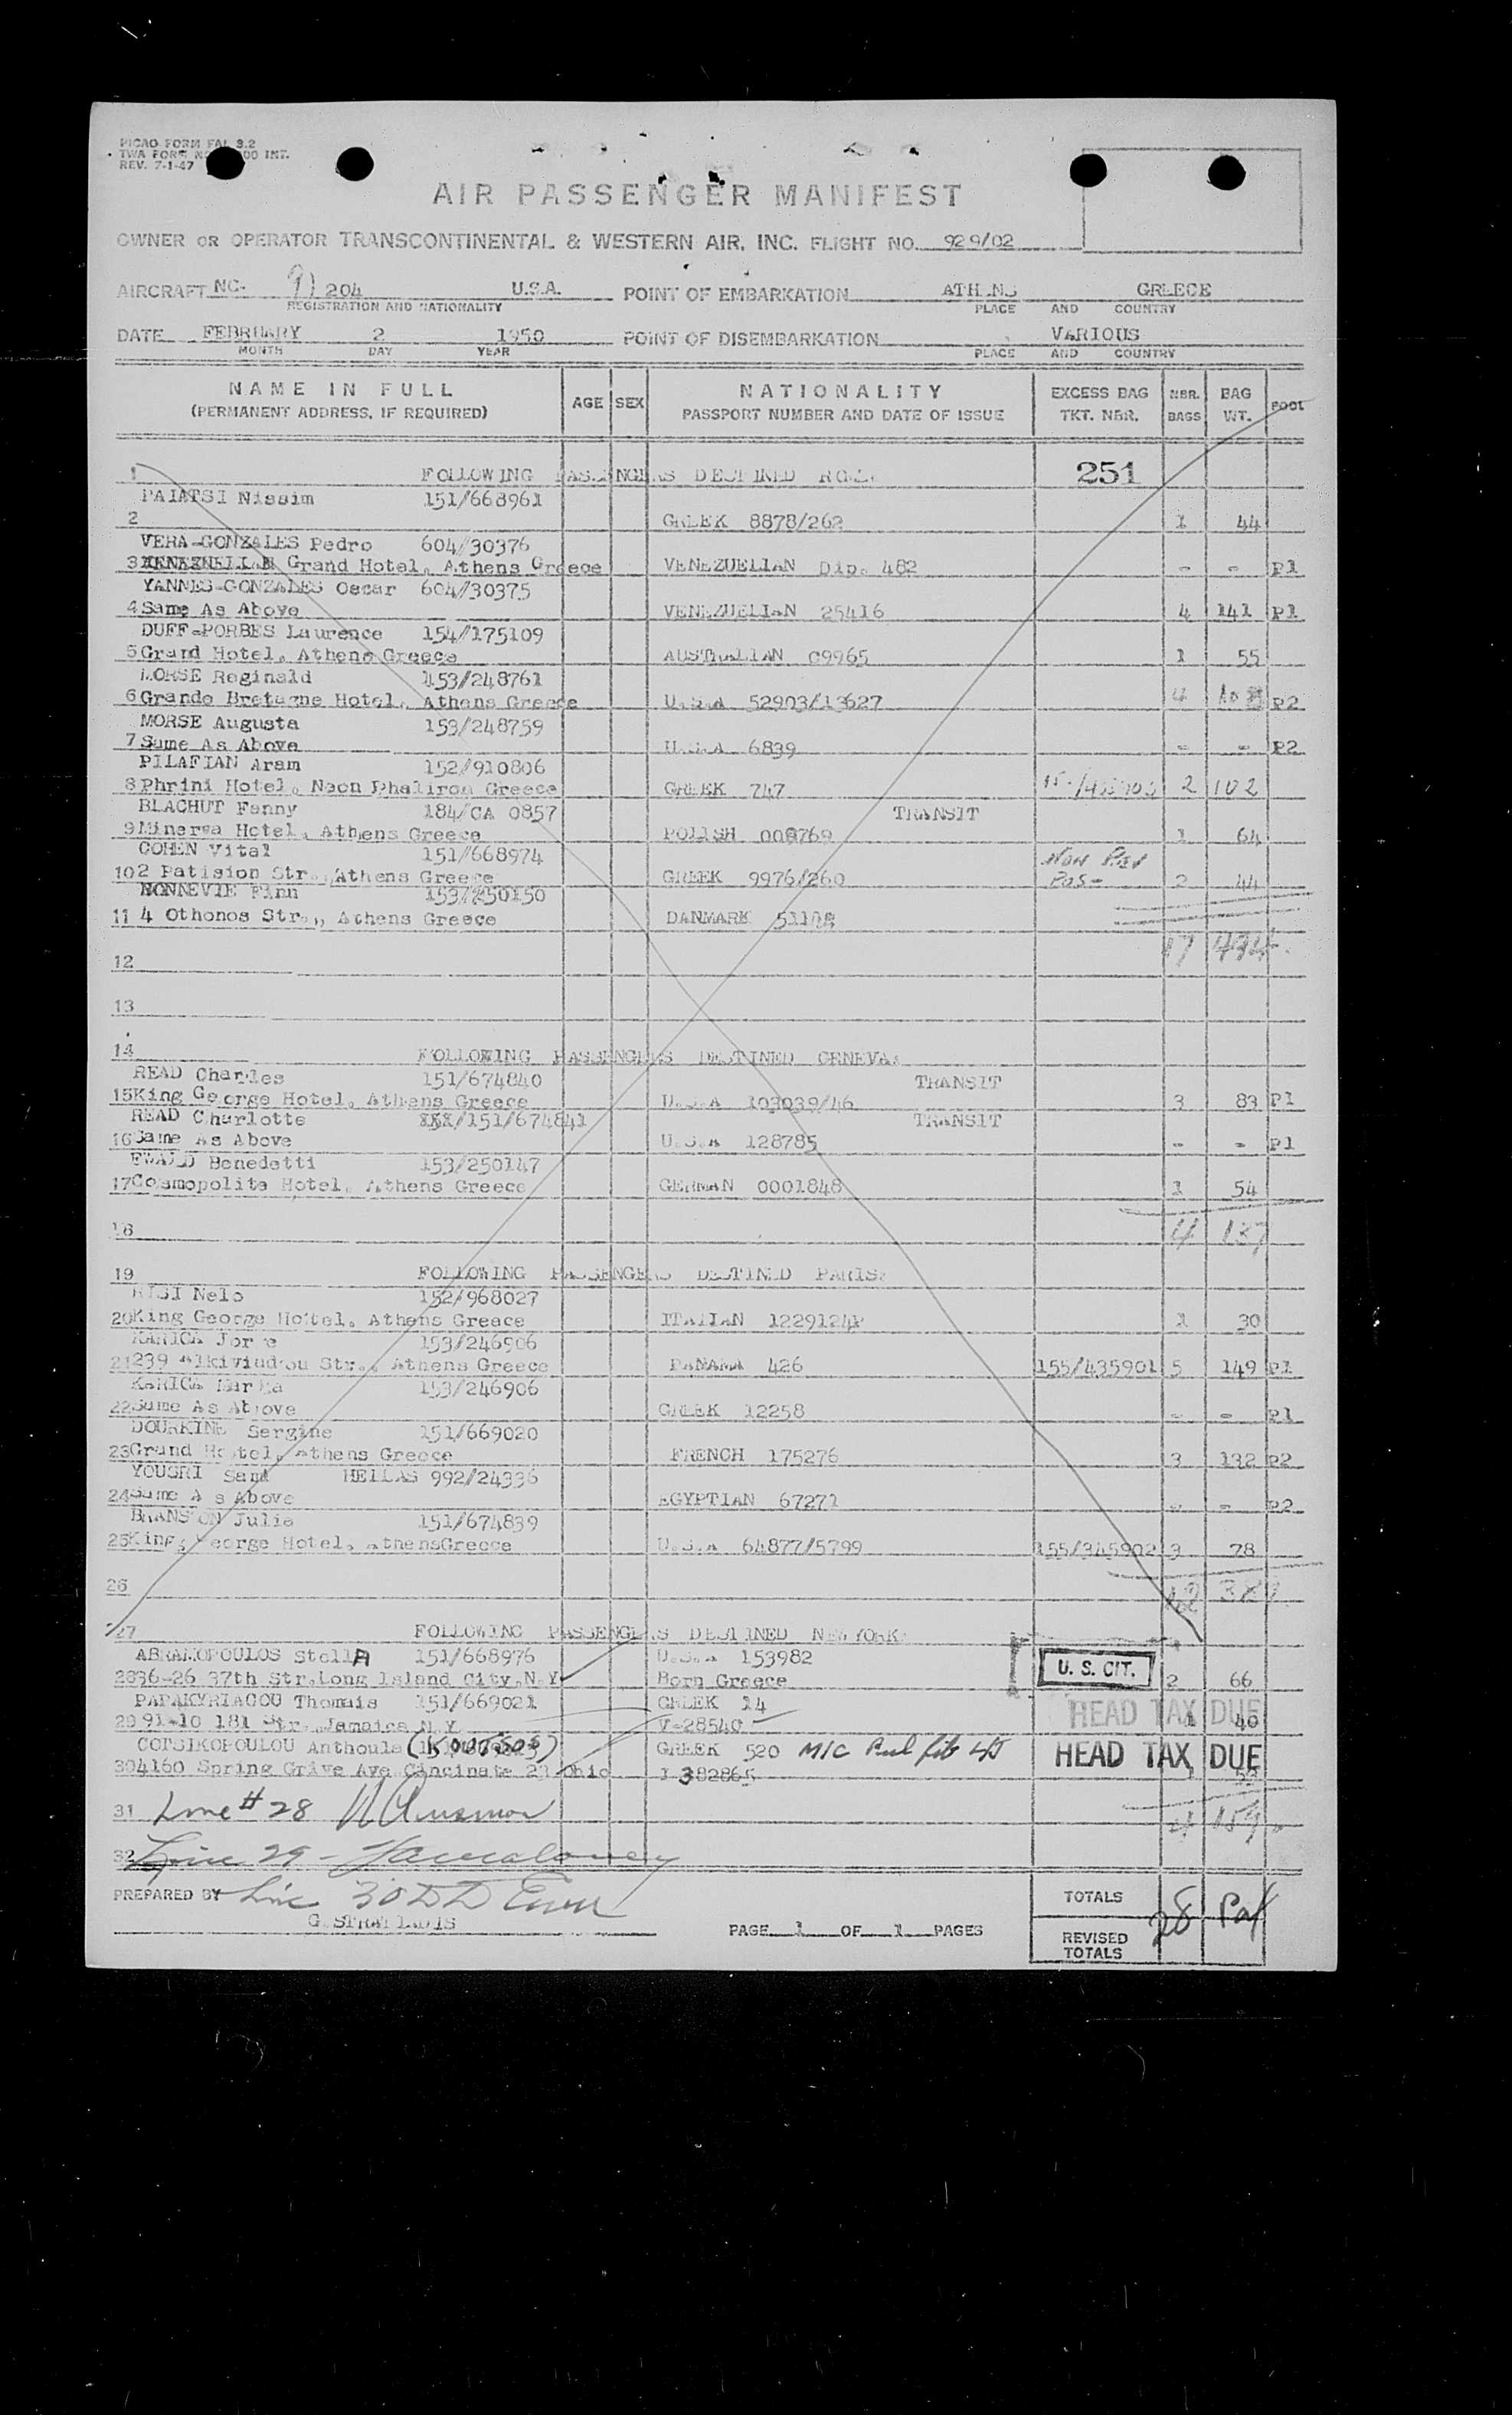 PICAO FORM FAL 3.2
TWA FORM 00 INT.
REV. 7-1-47
AIR PASSENGER MANIFEST
OWNER OR OPERATOR TRANSCONTINENTAL & WESTERN AIR, INC. FLIGHT NO. 929/02
AIRCRAFT NC- 91204 U.S.A. POINT OF EMBARKATION ATHENS GREECE
REGISTRATION AND NATIONALITY PLACE AND COUNTRY
DATE FEBRUARY 2 1950 POINT OF DISEMBARKATION VARIOUS
MONTH DAY YEAR PLACE AND COUNTRY
NAME IN FULL AGE SEX NATIONALITY EXCESS BAG NBR. BAG POOL
(PERMANENT ADDRESS, IF REQUIRED) PASSPORT NUMBER AND DATE OF ISSUE TKT. NBR. BAGS WT.
1 FOLLOWING PASSENGERS DESTINED ROME 251
PAIATSI Nissim 151/668961
2 GREEK 8878/262 1 44
VERA-GONZALES Pedro 604/30376
3 Grand Hotel, Athens Greece VENEZUELIAN Dip. 482 - - P1
YANNES-GONZALES Oscar 604/30375
4 Same As Above VENEZUELIAN 25416 4 141 P1
DUFF-PORBES Laurence 154/175109
5 Grand Hotel, Athens Greece AUSTRALIAN C9965 1 55
MORSE Reginald 153/248761
6 Grande Bretagne Hotel, Athens Greece U.S.A 52903/13627 4 P2
MORSE Augusta 153/248759
7 Same As Above U.S.A 6839 - - P2
PILAFIAN Aram 152/910806
8 Phrini Hotel, Neon Phaliron Greece GREEK 747 2 102
BLACHUT Fanny 184/CA 0857 TRANSIT
9 Minerva Hotel, Athens Greece POLISH 008769 1 64
COHEN Vital 151/668974 Non Rev
10 2 Patision Str., Athens Greece GREEK 9976/260 Pas- 2 44
NONNEVIE Finn 153/250150
11 4 Othonos Str., Athens Greece DANMARK
12
13
14 FOLLOWING PASSENGERS DESTINED GENEVA:
READ Charles 151/674840 TRANSIT
15 King George Hotel, Athens Greece U.S.A 103039/46 3 83 P1
READ Charlotte XXX/151/674841 TRANSIT
16 Same As Above U.S.A 128785 - - P1
EWALD Benedetti 153/250147
17 Cosmopolite Hotel, Athens Greece GERMAN 0001848 1 54
18 4 137
19 FOLLOWING PASSENGERS DESTINED PARIS:
RISI Nelo 152/968027
20 King George Hotel, Athens Greece ITALIAN 1 30
KARICA Jorge 153/246906
21 239 Alkiviadou Str., Athens Greece PANAMA 426 155/435901 5 149 P1
KARICA Marika 153/246906
22 Same As Above GREEK 12258 - - P1
DOURKINE Sergine 151/669020
23 Grand Hotel, Athens Greece FRENCH 175276 3 132 P2
YOUSRI Sami HELLAS 992/24336
24 Same As Above EGYPTIAN 67271 - - P2
BRANSTON Julia 151/674839
25 King George Hotel, AthensGreece U.S.A 64877/5799 155/345902 3 78
26
27 FOLLOWING PASSENGERS DESTINED NEWYORK:
ABRAMOPOULOS StellA 151/668976 U.S.A 153982 U. S. CIT.
28 36-26 37th Str.Long Island City,N.Y Born Greece 2 66
PAPAKYRIACOU Thomais 151/669021 GREEK 14 HEAD TAX DUE
29 91-10 181 Str. Jamaica N.Y V-28540 1 40
COTSIKOPOULOU Anthoula (KOUTSOS) GREEK 520 M/C HEAD TAX DUE
30 4160 Spring Grive Ave Cincinate 23 Ohio I 382865 1 53
31 Line # 28 4 159
32 Line 29 -
PREPARED BY Line 30 TOTALS 28 Pax
G. STRATIADIS PAGE 1 OF 1 PAGES REVISED
TOTALS